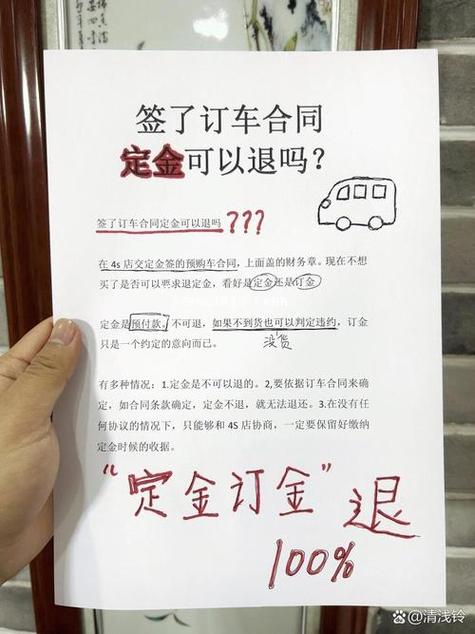 签了订车合同
定金可以退吗？
签了订车合同定金可以退吗???
在4s店交定金签的预购车合同，上面盖的财务章。现在不想
买了是否可以要求退定金，看好是定金还是订金
定金是预付款。不可退，如果不到货也可以判定违约，订金
只是一个约定的意向而已。
没货
有多种情况：1.定金是不可以退的。2,要依据订车合同来确
定，如合同条款确定，定金不退，就无法退还。3.在没有任
何协议的情况下，只能够和4S店协商，一定要保留好缴纳
定金时候的收据。
“定金订金”退
100%
@清浅铃